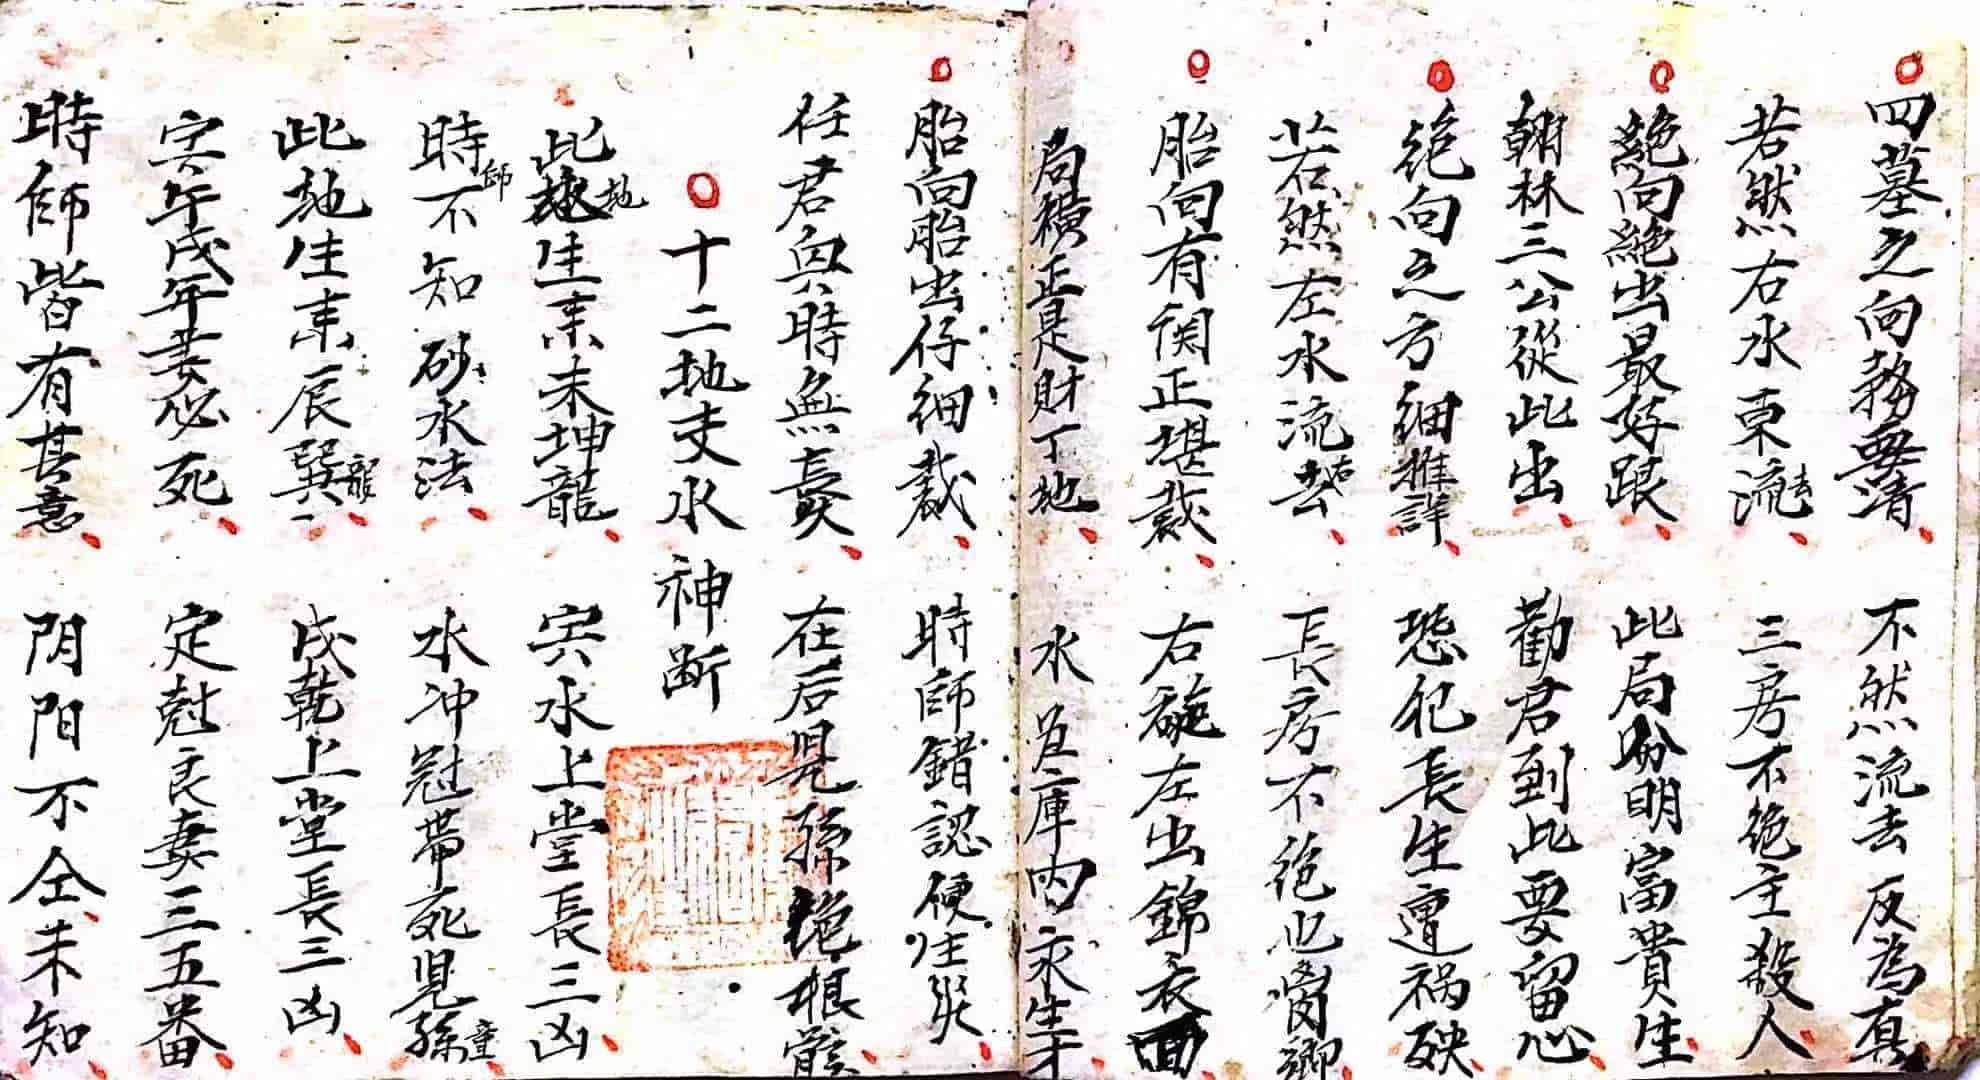 四墓之向務要清 不然流去反為真
若然右水東流去 三房不绝主殺人
絕向絕出最好跟 此局分明富貴生
翰林三公從此出 勸君到此要留心
绝向之方細推詳 恐犯長生遭禍殃
若然左水流右去 長房不绝也离鄉
胎向有関正堪裁 右 左出錦衣回
局橫正是財丁地 水 庫内永生才
胎向胎出仔細裁 時師錯認便生災
任君與時無 在后児孫绝根
十二地支水神断
此地生来未坤龍 寅水上堂長三凶
時師不知砂水法 水冲冠帶死児孫童
此地生来辰巽龍 戌乾上堂長三凶
寅午戌年妻必死 定尅良妻三五番
時師皆有其意 阴阳不仝未知